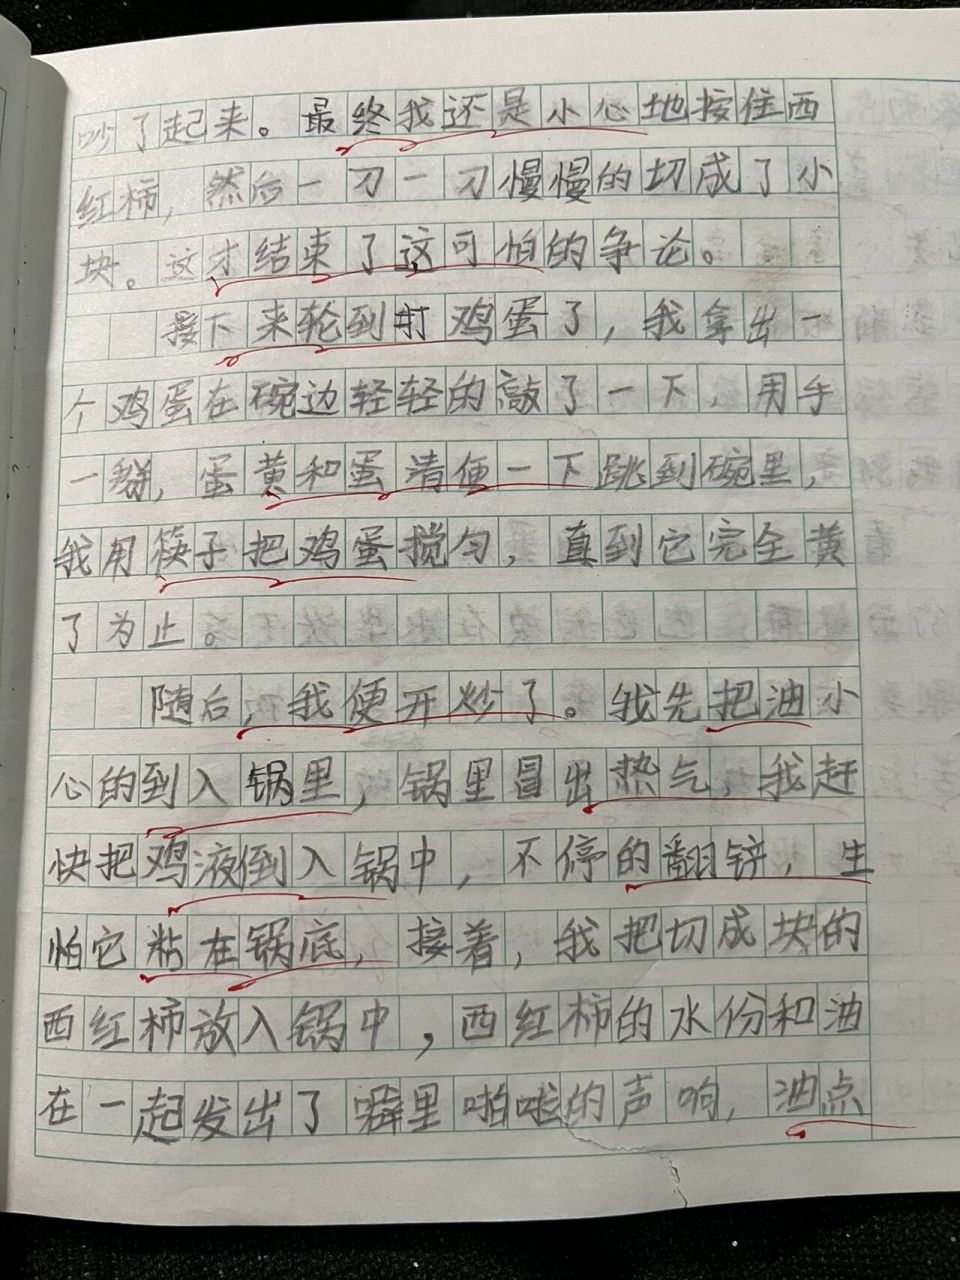 吵了起来。最终我还是小心地按住西
红柿，然后一刀一刀慢慢的切成了小
块。这才结束了这可怕的争论。
接下来轮到打鸡蛋了，我拿出一
个鸡蛋在碗边轻轻的敲了一下，用手
一掰，蛋黄和蛋清便一下跳到碗里，
我用筷子把鸡蛋搅匀，直到它完全黄
了为止。
随后，我便开炒了。我先把油小
心的到入锅里，锅里冒出热气，我赶
快把鸡液倒入锅中，不停的翻锌，生
怕它粘在锅底，接着，我把切成块的
西红柿放入锅中，西红柿的水份和油
在一起发出了噼里啪啦的声响，油点